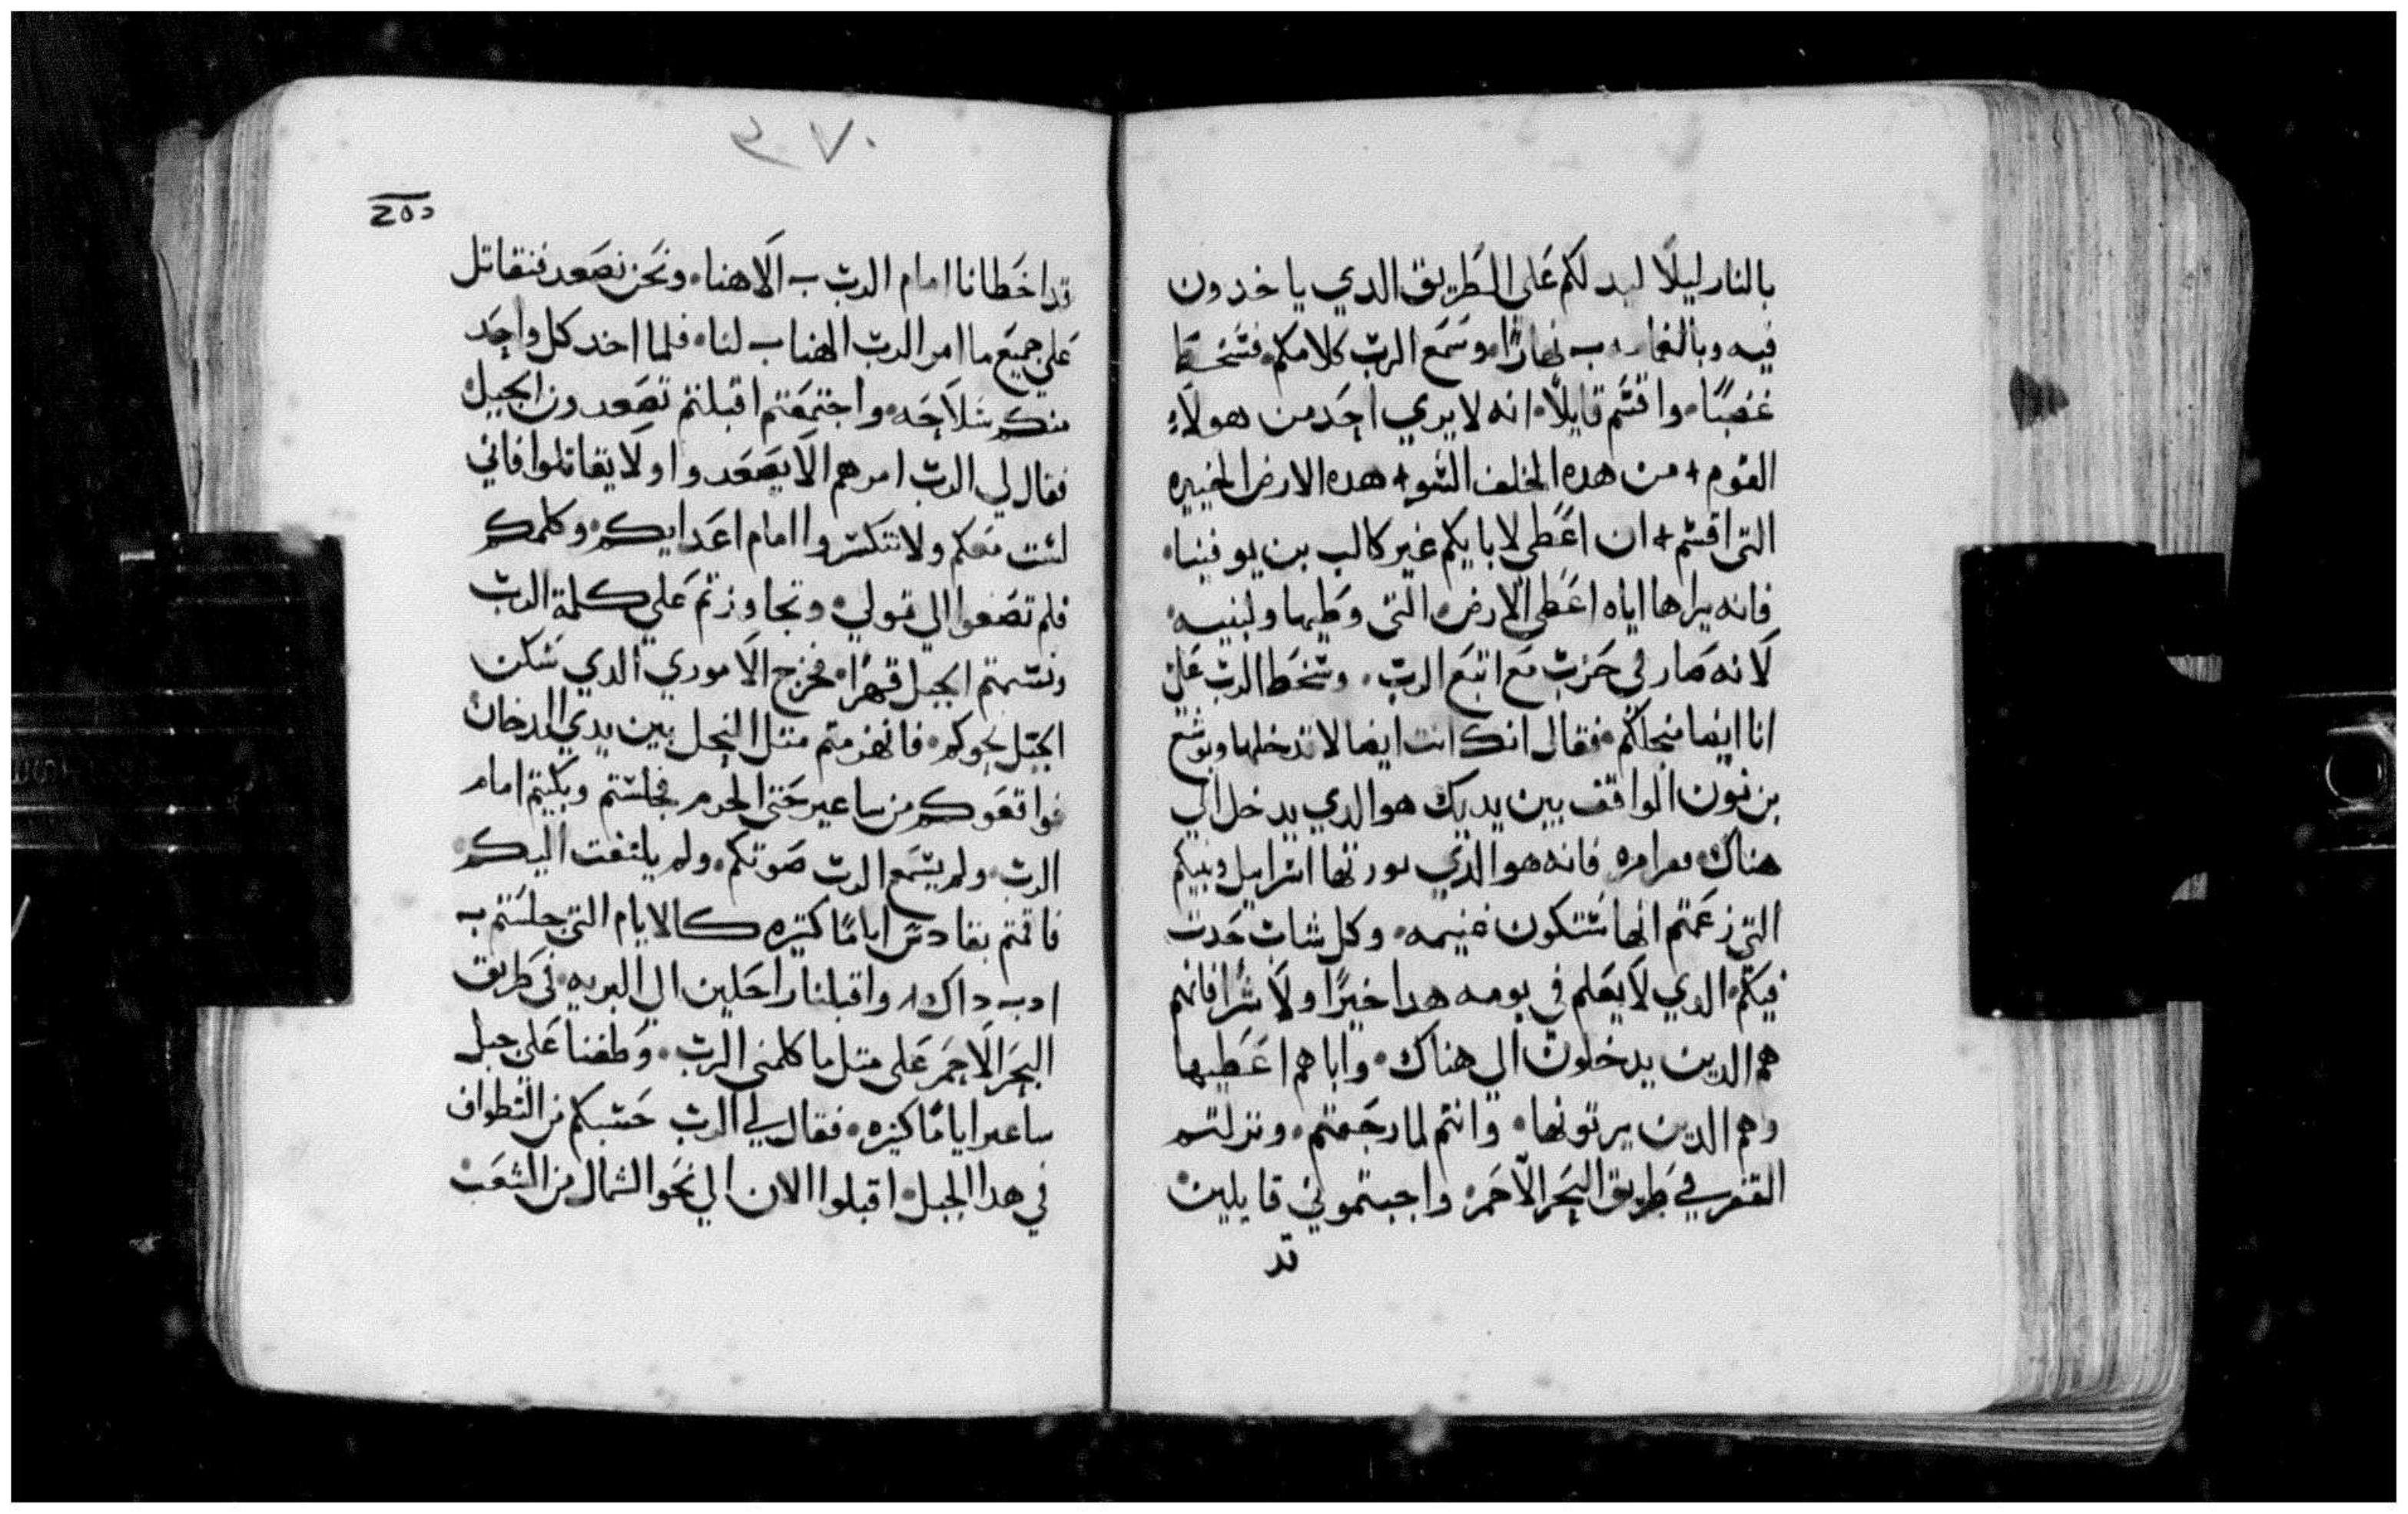 بالنار ليلًا ليدلكم علي الطريق الدي ياخدون
فيه وبالغمام ب نهارًا وسمع الرب كلامكم فسخط
غضبًا واقسم قايلًا انه لا يري احد من هولاء
القوم + من هده الخلف السو + هده الارض الخيره
التي اقسم + ان اعطي لابايكم غير كالب بن يوفينا
فانه يراها اياه اعطي الارض التي وطيها ولبنيه
لانه صار في حزب مع اتبع الرب وسخط الرب علي
انا ايضا منجلكم فقال انك انت ايضا لا تدخلها ويوشع
بن نون الواقف بين يديك هو الدي يدخل الي
هناك فانه هو الدي يورتها اسراييل وبنيكم
التي زعمتم انها ستكون غنيمه وكل شاب حدث
فيكم الدي لا يعلم في يومه هدا خيرًا ولا شرًا فانهم
هم الدين يدخلون الي هناك واياهم اعطيها
وهم الدين يرتونها وانتم لما رجعتم ونزلتم
القفر في طريق البحر الاحمر واجبتموني قايلين
قد
٣٧٠
قد اخطانا امام الرب ب الاهنا ونحن نصعد فنقاتل
علي جميع ما امر الرب الهنا ب لنا فلما اخد كل واحد
منكم سلاحه واجتمعتم اقبلتم تصعدون الجبل
فقال لي الرب امرهم الا يصعدوا ولا يقاتلوا فاني
لست معكم ولا تنكسروا امام اعدايكم وكلمتكم
فلم تصغوا الي قولي وتجاوزتم علي كلمة الرب
الجبل قهرًا فخرج الاموري الدي سكن
الجبل نحوكم فانهزمتم متل النحل بين يدي الدخان
فواقعوكم من ساعير حتي الحرم فجلستم وبكيتم امام
الرب ولم يسمع الرب صوتكم ولم يلتفت اليكم
فاقمتم بقادس ايامًا كتيره كالايام التي جلستم ب
اوب داك واقبلنا راحلين الي البريه في طريق
البحر الاحمر علي متل ما كلمني الرب وطفنا علي جبل
ساعير ايامًا كتيره فقال لي الرب حسبكم من التطواف
في هدا الجبل اقبلوا الان الي نحو الشمال من الشعب